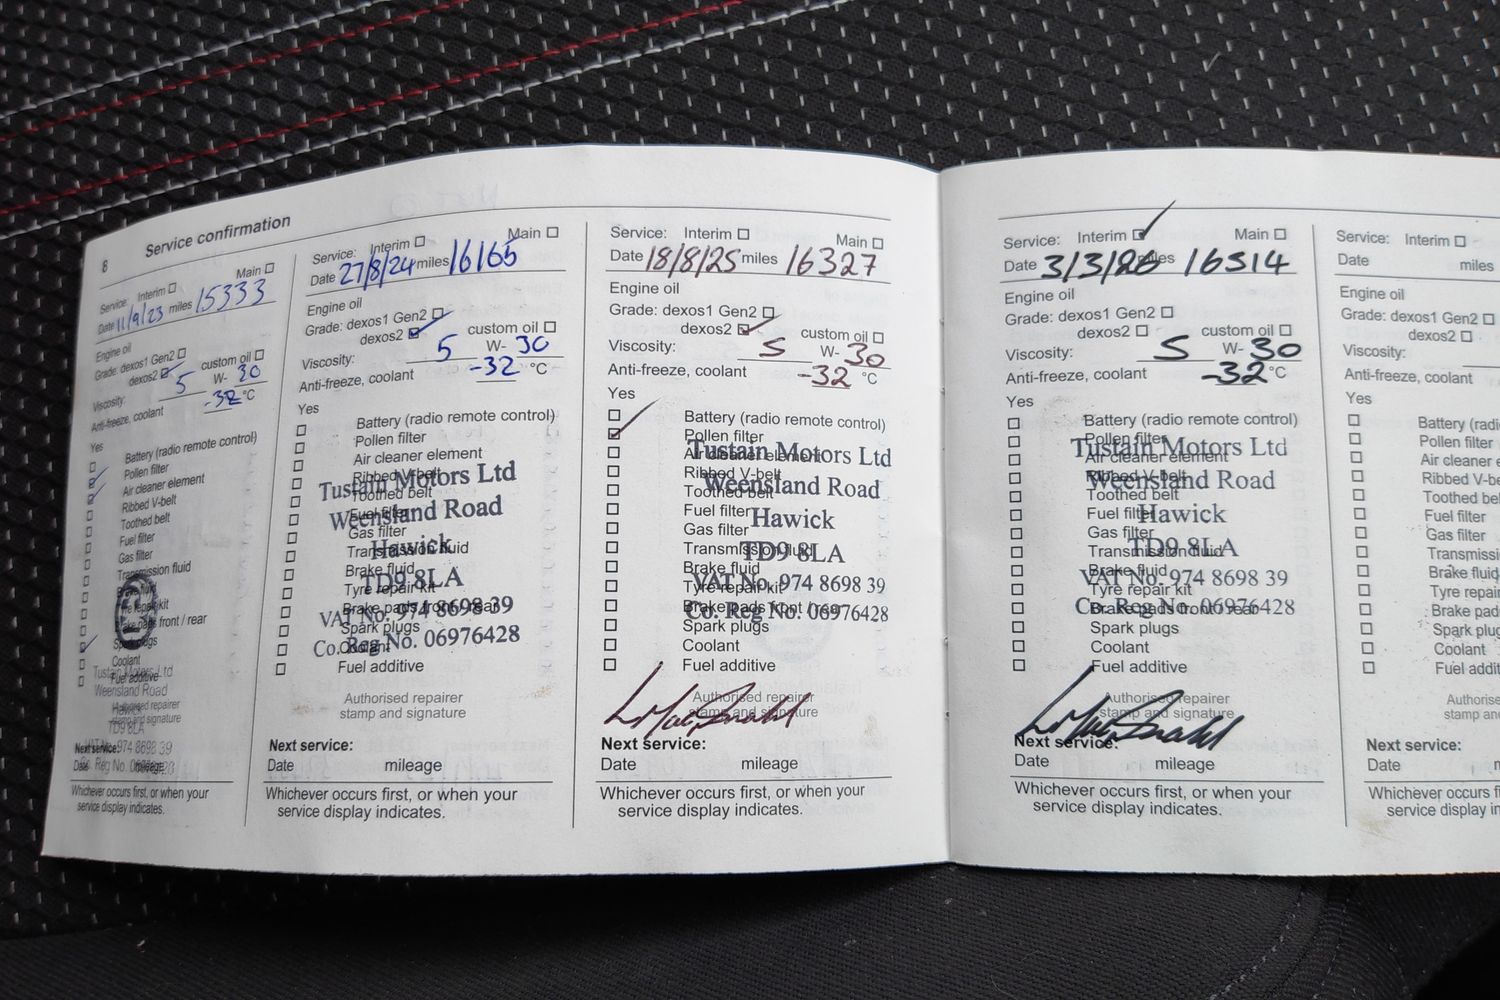 8
Service confirmation
Service: Interim Main
Date 11/9/23 miles 15333
Engine oil
Grade: dexos1 Gen2
dexos2 custom oil
Viscosity: 5 W- 30
Anti-freeze, coolant -32 °C
Yes
Battery (radio remote control)
Pollen filter
Air cleaner element
Ribbed V-belt
Toothed belt
Fuel filter
Gas filter
Transmission fluid
Brake fluid
Tyre repair kit
Brake pads front / rear
Spark plugs
Coolant
Fuel additive
Tustain Motors Ltd
Weensland Road
Hawick
TD9 8LA
VAT No. 974 8698 39
Co. Reg No. 06976428
Authorised repairer
stamp and signature
Next service:
Date mileage
Whichever occurs first, or when your
service display indicates.
Service: Interim Main
Date 27/8/24 miles 16165
Engine oil
Grade: dexos1 Gen2
dexos2 custom oil
Viscosity: 5 W- 30
Anti-freeze, coolant -32 °C
Yes
Battery (radio remote control)
Pollen filter
Air cleaner element
Ribbed V-belt
Toothed belt
Fuel filter
Gas filter
Transmission fluid
Brake fluid
Tyre repair kit
Brake pads front / rear
Spark plugs
Coolant
Fuel additive
Tustain Motors Ltd
Weensland Road
Hawick
TD9 8LA
VAT No. 974 8698 39
Co. Reg No. 06976428
Authorised repairer
stamp and signature
Next service:
Date mileage
Whichever occurs first, or when your
service display indicates.
Service: Interim Main
Date 18/8/25 miles 16327
Engine oil
Grade: dexos1 Gen2
dexos2 custom oil
Viscosity: 5 W- 30
Anti-freeze, coolant -32 °C
Yes
Battery (radio remote control)
Pollen filter
Air cleaner element
Ribbed V-belt
Toothed belt
Fuel filter
Gas filter
Transmission fluid
Brake fluid
Tyre repair kit
Brake pads front / rear
Spark plugs
Coolant
Fuel additive
Tustain Motors Ltd
Weensland Road
Hawick
TD9 8LA
VAT No. 974 8698 39
Co. Reg No. 06976428
Authorised repairer
stamp and signature
Next service:
Date mileage
Whichever occurs first, or when your
service display indicates.
Service: Interim Main
Date 3/3/26 miles 16514
Engine oil
Grade: dexos1 Gen2
dexos2 custom oil
Viscosity: 5 W- 30
Anti-freeze, coolant -32 °C
Yes
Battery (radio remote control)
Pollen filter
Air cleaner element
Ribbed V-belt
Toothed belt
Fuel filter
Gas filter
Transmission fluid
Brake fluid
Tyre repair kit
Brake pads front / rear
Spark plugs
Coolant
Fuel additive
Tustain Motors Ltd
Weensland Road
Hawick
TD9 8LA
VAT No. 974 8698 39
Co. Reg No. 06976428
Authorised repairer
stamp and signature
Next service:
Date mileage
Whichever occurs first, or when your
service display indicates.
Service: Interim
Date miles
Engine oil
Grade: dexos1 Gen2
dexos2
Viscosity:
Anti-freeze, coolant
Yes
Battery (radi
Pollen filter
Air cleaner e
Ribbed V-b
Toothed bel
Fuel filter
Gas filter
Transmissi
Brake fluid
Tyre repair
Brake pads
Spark plug
Coolant
Fuel addit
Authorise
stamp an
Next service:
Date
Whichever occurs fi
service display in